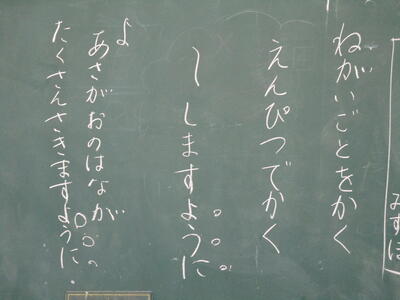 みずほ
ねがいごとをかく
えんぴつでかく
～しますように
よ
あさがおのはなが
たくさんさきますように